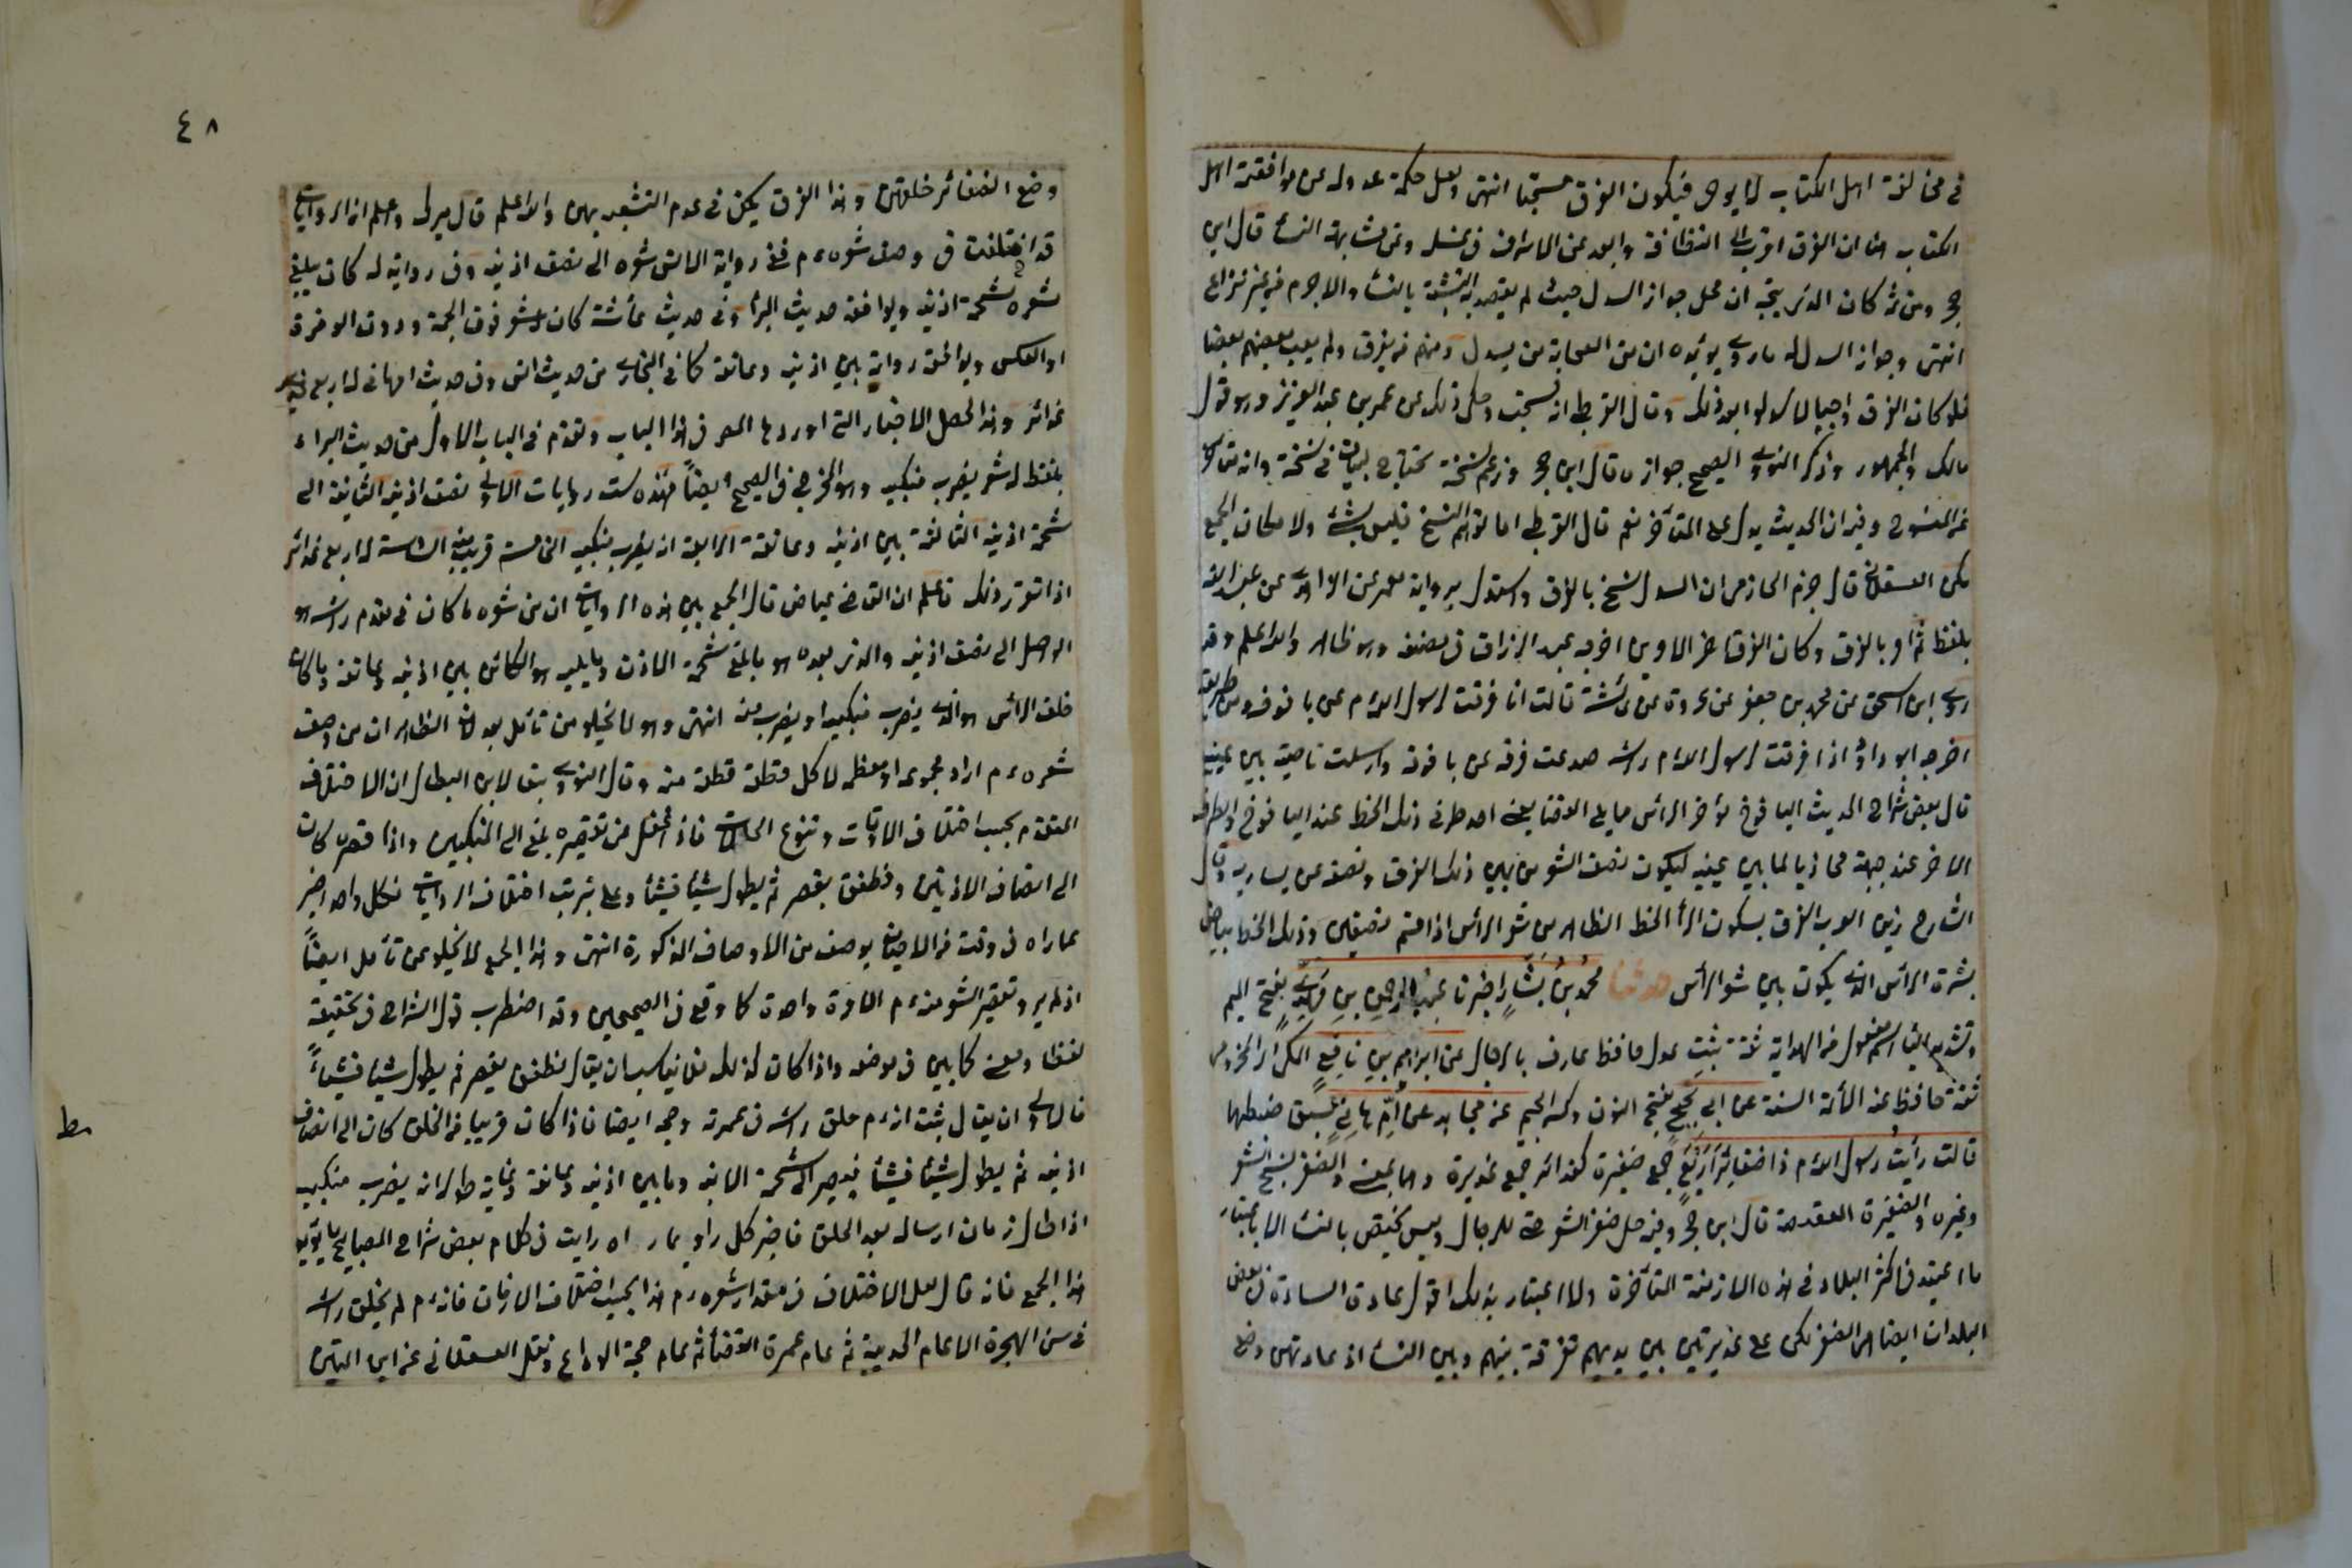 في مخالفة اهل الكتاب لا يوحى فيكون الفرق مستحبا انتهى ولعل حكمة عدوله عن موافقة اهل
الكتاب هنا ان الفرق اقرب الى النظافة وابعد عن الاسراف في غسله وعن مشابهة النساء قال ابن
حجر ومن ثم كان الذي يتجه ان محل جواز السدل حيث لم يقصد به التشبه بالنساء والا حرم من غير نزاع
انتهى وجواز السدل له ما روي يؤيده ان من الصحابة من يسدل ومنهم من يفرق ولم يعب بعضهم بعضا
فلو كان الفرق واجبا لما سدلوا بعد ذلك وقال القرطبي انه مستحب وحكى ذلك عن عمر بن عبد العزيز وهو قول
مالك والجمهور وذكر النووي الصحيح جوازه قال ابن حجر وزعم نسخه يحتاج لبيان نسخه وانه متأخر
عن المنسوخ وفيه ان الحديث يدل على المتأخر نعم قال القرطبي اما توهم النسخ فليس بشئ ولا مكان الجمع
لكن العسقلاني قال جزم الحازمي ان السدل نسخ بالفرق واستدل برواية معمر عن الزهري عن عبيد الله
بلفظ ثم امر بالفرق وكان الفرق آخر الامرين اخرجه عبد الرزاق في مصنفه وهو ظاهر والله اعلم وقد
روى ابن اسحق عن محمد بن جعفر عن عروة عن عائشة قالت انا فرقت لرسول الله عم عن يافوخه ومن طريقه
اخرجه ابو داود اذا فرقت لرسول الله عم رأسه صدعت فرقه عن يافوخه وارسلت ناصيته بين عينيه
قال بعض شراح الحديث اليافوخ مؤخر الرأس مما يلي القفا يعني احد طرفي ذلك الخط عند اليافوخ والطرف
الآخر عند جبهة محاذيا لما بين عينيه ليكون نصف الشعر من يمين ذلك الفرق ونصفه عن يساره وقال
الشارح زين العرب الفرق بسكون الراء الخط الظاهر من شعر الرأس اذا قسم نصفين وذلك الخط بياض
بشرة الرأس الذي يكون بين شعر الرأس حدثنا محمد بن بشار اخبرنا عبد الرحمن بن مهدي بفتح الميم
وتشديد الياء اسم مفعول من الهداية ثقة ثبت عدل حافظ عارف بالرجال عن ابراهيم بن نافع المكي المخزومي
ثقة حافظ عنه الائمة الستة عن ابن ابي نجيح بفتح النون وكسر الجيم عن مجاهد عن ام هانئ سبق ضبطها
قالت رأيت رسول الله عم ذا ضفائر اربع جمع ضفيرة كغدائر جمع غديرة وهما بمعنى والضفر نسج الشعر
وغيره والضفيرة العقيصة قال ابن حجر وفيه حل ضفر الشعر حتى للرجال وليس يختص بالنساء الا باعتبار
ما اعتيد في اكثر البلاد في هذه الازمنة المتأخرة ولا اعتبار بذلك اقول عادة السادة في بعض
البلدان ايضا هي الضفر لكن على غديرتين بين يديهم تفرقة بينهم وبين النساء اذ عادتهن وضع
٤٨
وضع الضفائر خلفهن وهذا الفرق يكفي في عدم التشبه بهن والله اعلم قال ميرك واعلم ان الروايات
قد اختلفت في وصف شعره عم ففي رواية لانس شعره الى نصف اذنيه وفي رواية له كان يبلغ
شعره شحمة اذنيه ويوافقه حديث البراء وفي حديث عائشة كان شعره فوق الجمة ودون الوفرة
او العكس ويوافقه رواية بين اذنيه وعاتقه كما في البخاري من حديث انس وفي حديث ام هانئ له اربع
غدائر وهذا محصل الاخبار التي اوردها المصـ في هذا الباب وتقدم في الباب الاول من حديث البراء
بلفظ له شعر يضرب منكبيه وهو المخرج في الصحيح ايضاً فهذه ست روايات الاولى نصف اذنيه الثانية الى
شحمة اذنيه الثالثة بين اذنيه وعاتقه الرابعة انه يضرب منكبيه الخامسة قريب منه السادسة له اربع غدائر
اذا تقرر ذلك فاعلم ان القاضي عياض قال الجمع بين هذه الروايات ان من شعره ما كان في مقدم رأسه هو
الواصل الى نصف اذنيه والذي بعده هو بالغ شحمة الاذن وما يليه هو الكائن بين اذنيه وعاتقه وما كان
خلف الرأس هو الذي يضرب منكبيه او يقرب منه انتهى وهو لا يخلو من تأمل بعد لان الظاهر ان من وصف
شعره عم اراد مجموعه او معظمه لا كل قطعة قطعة منه وقال النووي تبعا لابن البطال ان الاختلاف
المتقدم بحسب اختلاف الاوقات وتنوع الحالات فاذا غفل عن تقصيره بلغ الى المنكبين واذا قصره كان
الى انصاف الاذنين وطفق يقصر ثم يطول شيئا فشيئا وعلى ترتيب اختلاف الروايات فكل واحد اخبر
عما راه في وقت من الاحيان بوصف من الاوصاف المذكورة انتهى وهذا الجمع لا يخلو عن تأمل ايضاً
اذ لم يرد تقصير الشعر منه عم الا مرة واحدة كما وقع في الصحيحين وقد اضطرب قول الشراح في تحقيقه
لفظا ومعنى كما بين في موضعه واذا كان كذلك فلا يناسب ان يقال فطفق يقصر ثم يطول شيئا فشيئاً
فالاولى ان يقال ثبت انه عم حلق رأسه في عمرته وحجه ايضا فاذا كان قريبا من الحلق كان الى انصاف
اذنيه ثم يطول شيئا فشيئا فيصير الى شحمة اذنيه وما بين اذنيه وعاتقه وغاية طوله انه يضرب منكبيه
اذا طال زمان ارساله بعد الحلق فاخبر كل راو بما راه رايت في كلام بعض شراح المصابيح ما يؤيد
هذا الجمع فانه قال لعل الاختلاف في مقدار شعره عم هذا بحسب اختلاف الازمان فانه عم لم يحلق رأسه
في سن الهجرة الا عام الحديبية ثم عام عمرة القضاء ثم عام حجة الوداع ونقل العسقلاني عن ابن التين